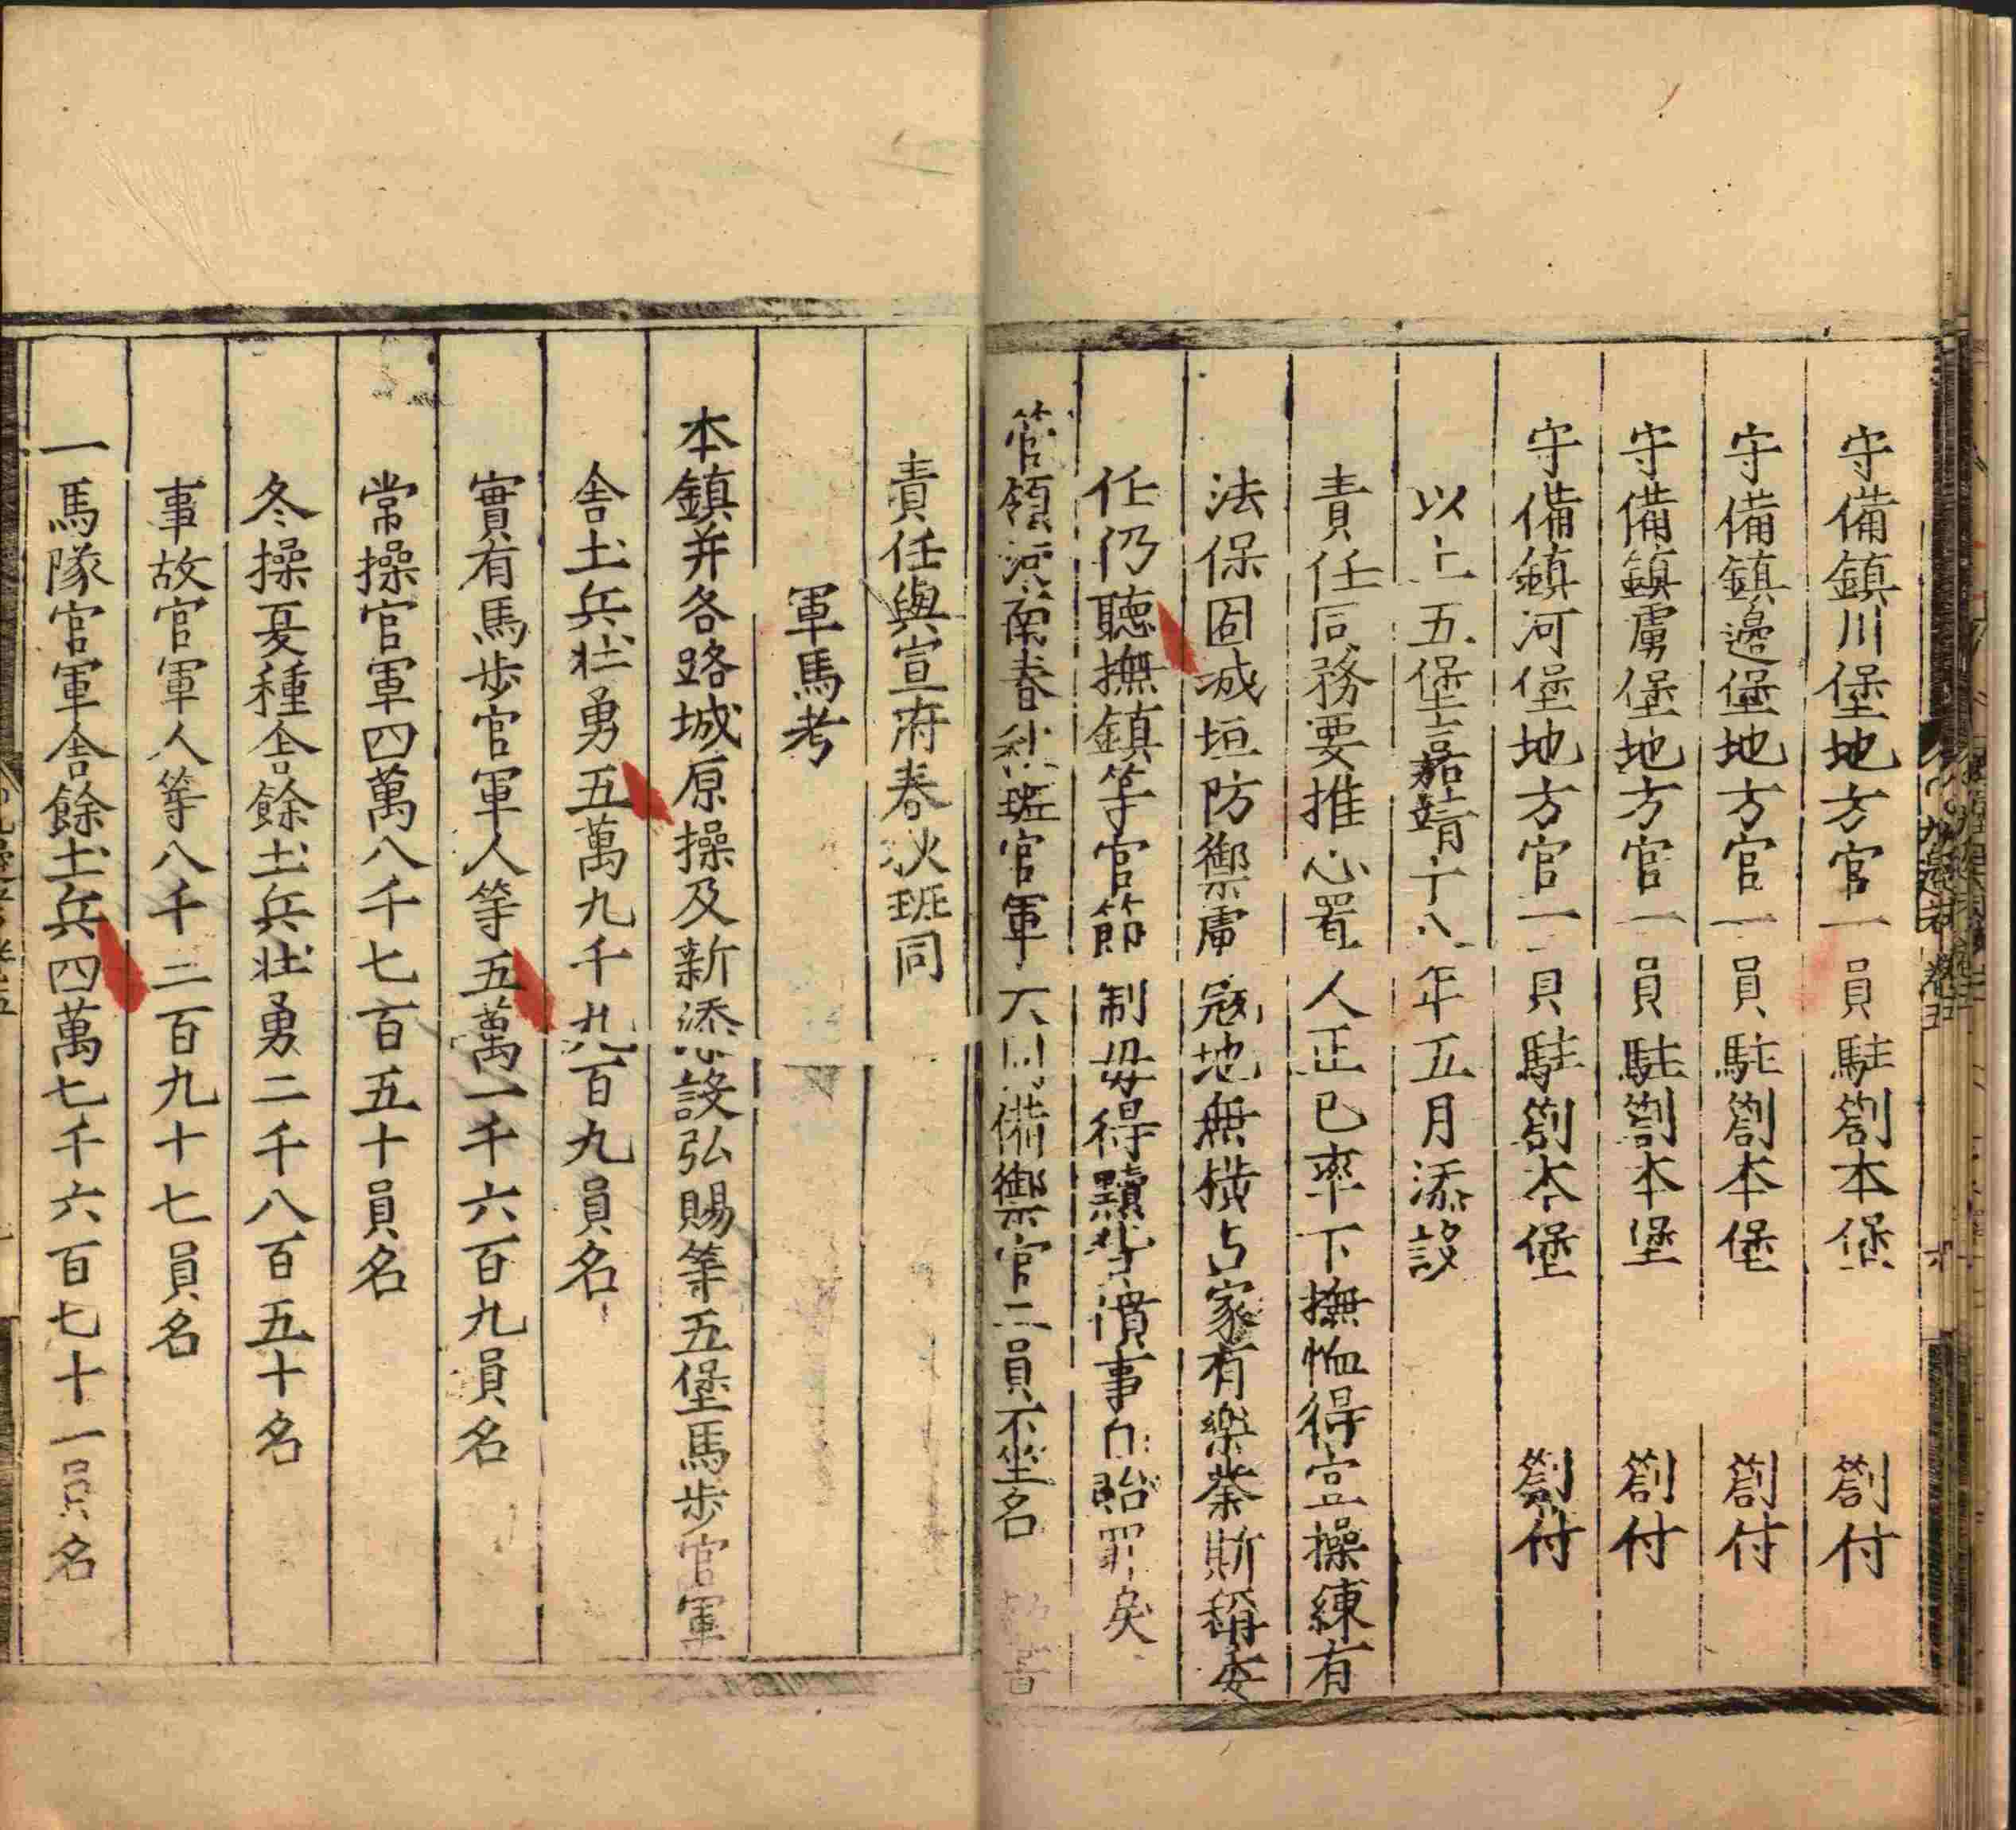 守備鎮川堡地方官一員駐劄本堡 劄付
守備鎮邊堡地方官一員駐劄本堡 劄付
守備鎮虜堡地方官一員駐劄本堡 劄付
守備鎮河堡地方官一員駐劄本堡 劄付
以上五堡嘉靖十八年五月添設
責任同務要推心置人正已率下撫恤得宜操練有
法保固城垣防禦虜寇地無橫占家有樂業斯稱委
任仍聽撫鎮等官節制毋得黷貨僨事自貽罪戾
管領河南春秋班官軍大同備禦官二員不坐名
責任與宣府春秋班同
軍馬考
本鎮并各路城原操及新添設弘賜等五堡馬步官軍
舍土兵壯勇五萬九千九百九員名
實有馬步官軍人等五萬一千六百九員名
常操官軍四萬八千七百五十員名
冬操夏種舍餘土兵壯勇二千八百五十名
事故官軍人等八千二百九十七員名
一馬隊官軍舍餘土兵四萬七千六百七十一員名